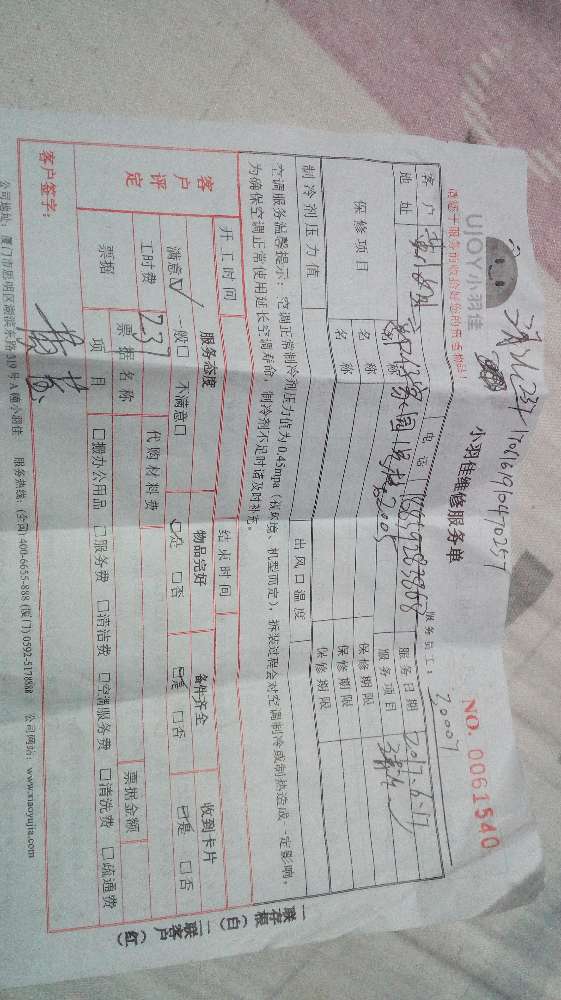 UJOY小羽佳
小羽佳维修服务单
NO. 0061540
170161910470257
服务员工: 20007
客户 电话 服务日期 2017.6.17
地址 服务项目
保修项目 名称 保修期限
名称 保修期限
名称 保修期限
制冷剂压力值 出风口温度
空调服务温馨提示:空调正常制冷剂压力值为0.45mpa(视环境、机型而定),拆装过程会对空调制冷或制热造成一定影响,
为确保空调正常使用延长空调寿命,制冷剂不足时请及时补充。
开工时间 结束时间
客户评定 服务态度 物品完好 备件齐全 收到卡片
满意☑ 一般□ 不满意□ ☑是 □否 ☑是 □否 ☑是 □否
工时费 237 代购材料费
票据 票据名称 票据金额
项目 □搬办公用品 □服务费 □清洁费 □空调服务费 □清洗费 □疏通费
客户签字:
公司地址:厦门市思明区湖滨东路319号A幢小羽佳 服务热线:(全国)400-6655-888 (厦门)0592-5178888 公司网站:www.xiaoyujia.com
一联存根(白) 二联客户(红)